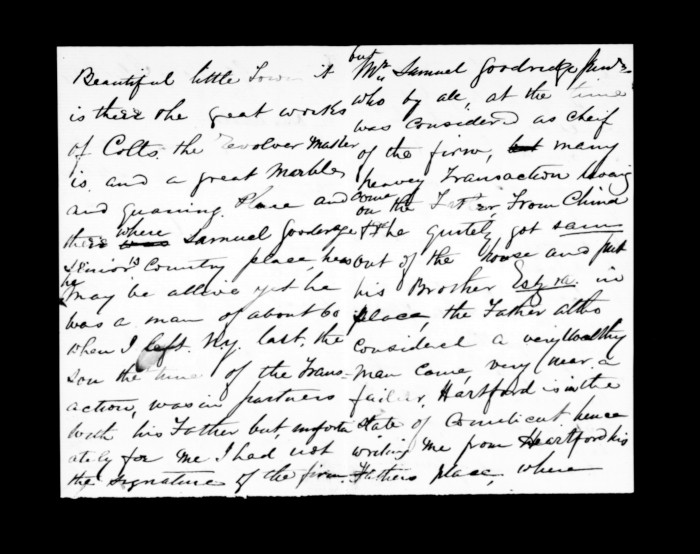 Beautiful little Town it
is there the great works
of Colts, the revolver Master
is, and a great Marble
and Place and
there where was Samuel Goodredge
senior's Country place, has
he may be alleve yet he
was a man of about 60
when I left N.y. last, the
son the time of the Trans=
action, was in partners
with his Father but, unfortu
ately for me I had not
the signature of the firm.
but
Mr Samuel Goodredge Junr
who by all, at the time
was considered as cheif
of the firm, but many
heavey Transaction
come
on the From China
he quitely got Sam
out of the house and put
his Brother in
place, the Father altho
considerd a very Wealthy
man came very near a
failer. Hartford is in the
State of Conniticut hence
writing me from Heartford his
Fathers place, where